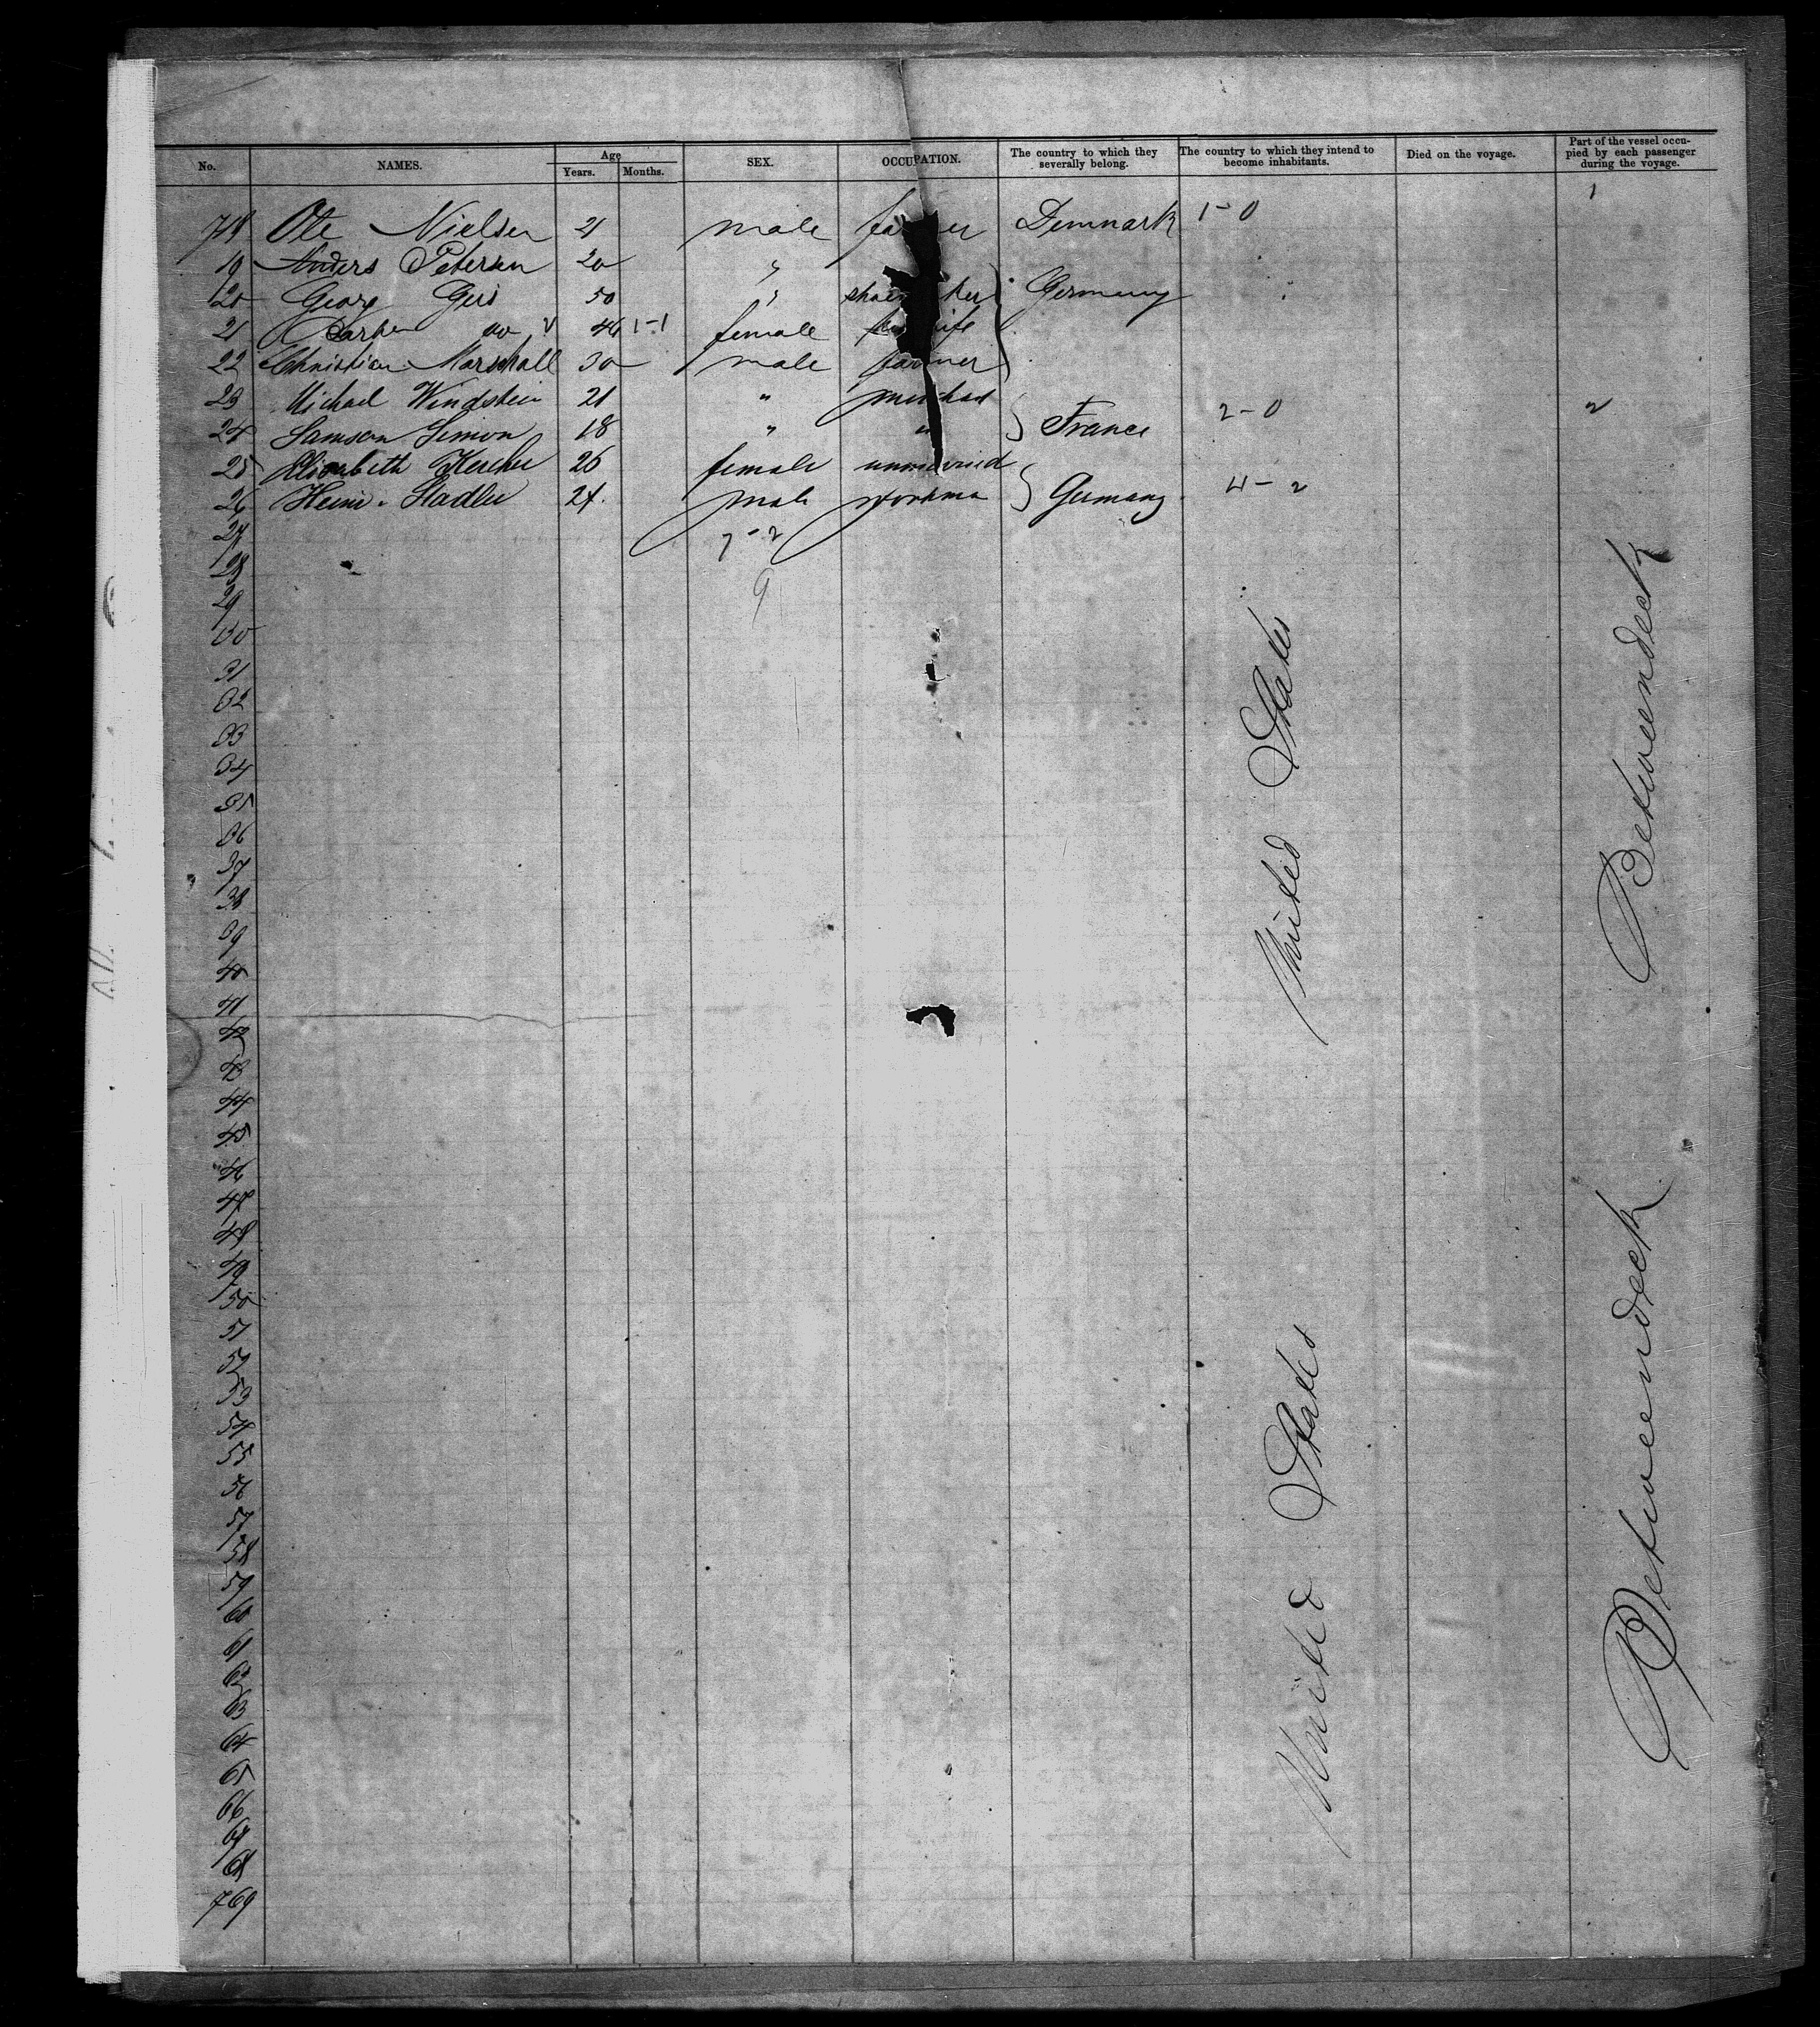 No. NAMES. Age Years. Months. SEX. OCCUPATION. The country to which they severally belong. The country to which they intend to become inhabitants. Died on the voyage. Part of the vessel occupied by each passenger during the voyage.
1
718 Ole Nielsen 21 male fa er Denmark 1-0
19 Anders Petersen 20 "
20 Georg Geis 50 " shoe ker Germany
21 do 46 1-1 female wife
22 Christian Marschall 30 male farmer
23 Michael Windstein 21 "
24 Samson Simon 18 " " France 2-0 2
25 Elisabeth Kercher 26 female unmarried
26 Heinr. Stadler 24. male workma Germany 4-2
27 7-2
28
29 9
30
31
32
33
34
35
36
37
38
39
40
41
42
43
44
45
46
47
48
49
50
51
52
53
54
55
56
57
58
59
60
61
62
63
64
65
66
67
68
769
United States
Betweendeck
United States
Betweendeck